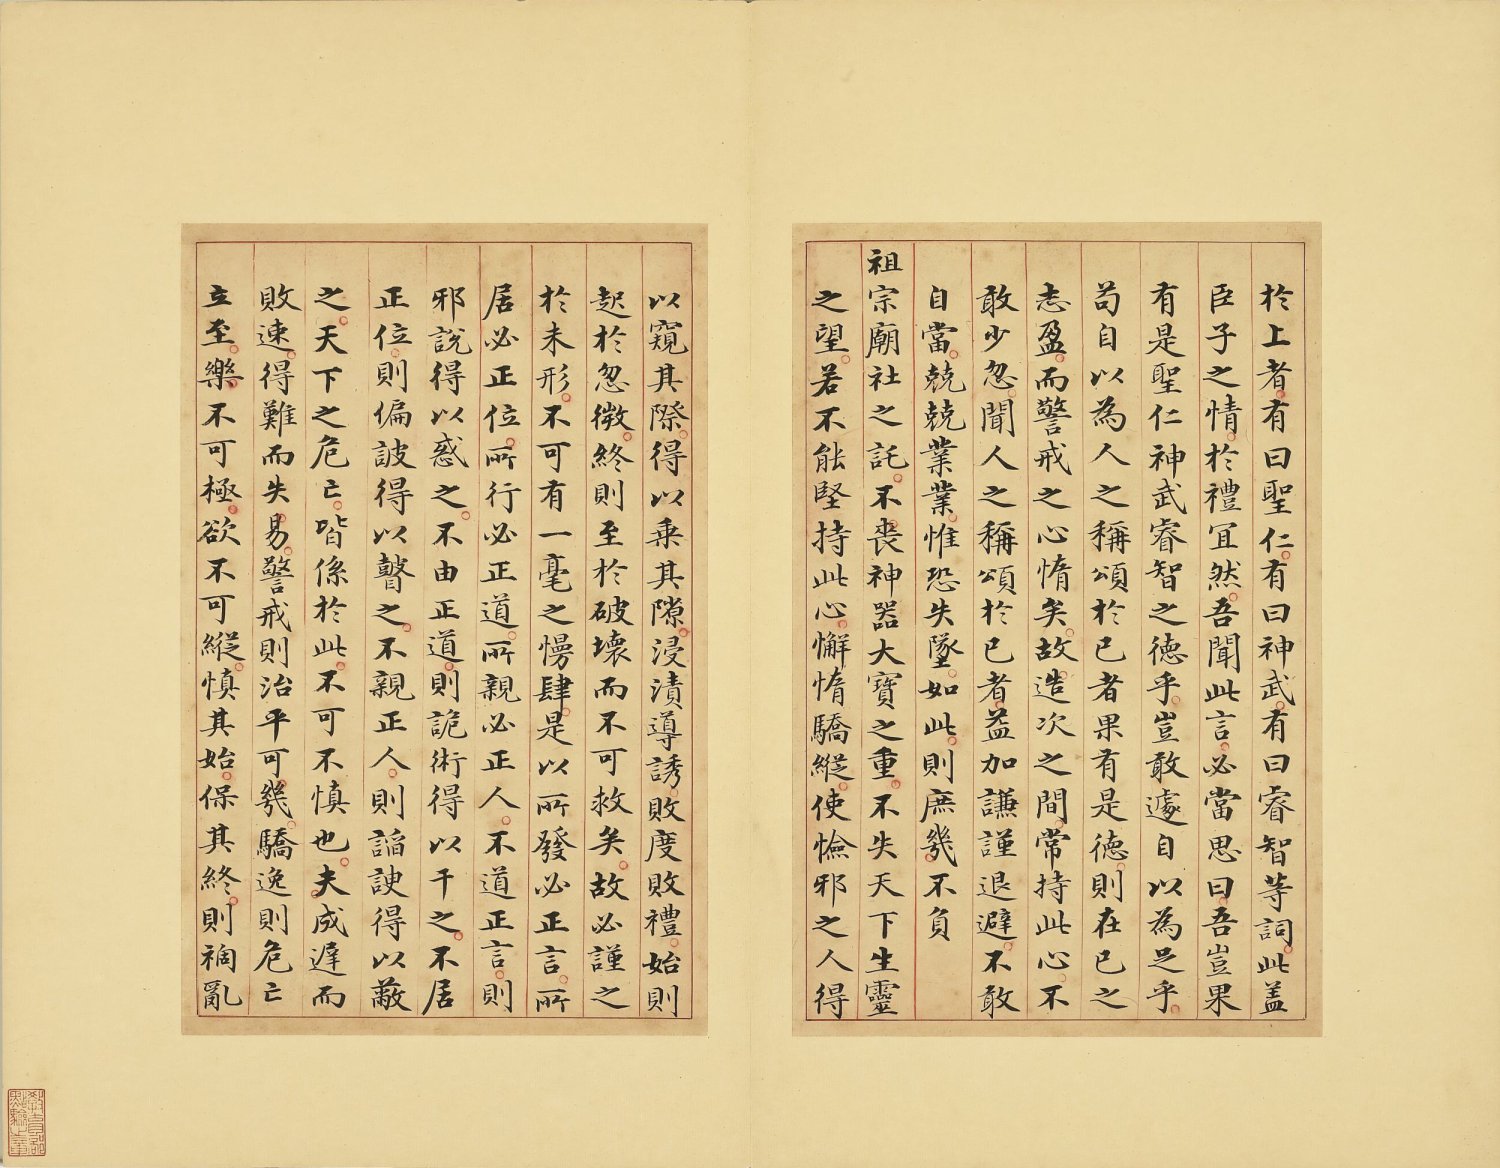 於上者有曰聖仁有曰神武有曰睿智等詞此盖
臣子之情於禮冝然吾聞此言必當思曰吾豈果
有是聖仁神武睿智之德乎豈敢遽自以為足乎
苟自以為人之稱頌於已者果有是德則在已之
志盈而警戒之心惰矣故造次之間常持此心不
敢少忽聞人之稱頌於已者益加謙謹退避不敢
自當兢兢業業惟恐失墜如此則庶幾不負
祖宗廟社之託不喪神器大寶之重不失天下生靈
之望若不能堅持此心懈惰驕縱使憸邪之人得
以窺其際得以乘其隙浸漬導誘敗度敗禮始則
起於忽微終則至於破壞而不可救矣故必謹之
於未形不可有一毫之慢肆是以所發必正言所
居必正位所行必正道所親必正人不道正言則
邪說得以惑之不由正道則詭術得以干之不居
正位則偏詖得以瞽之不親正人則謟諛得以蔽
之天下之危亡皆係於此不可不慎也夫成遲而
敗速得難而失易警戒則治平可幾驕逸則危亡
立至樂不可極欲不可縱慎其始保其終則禍亂